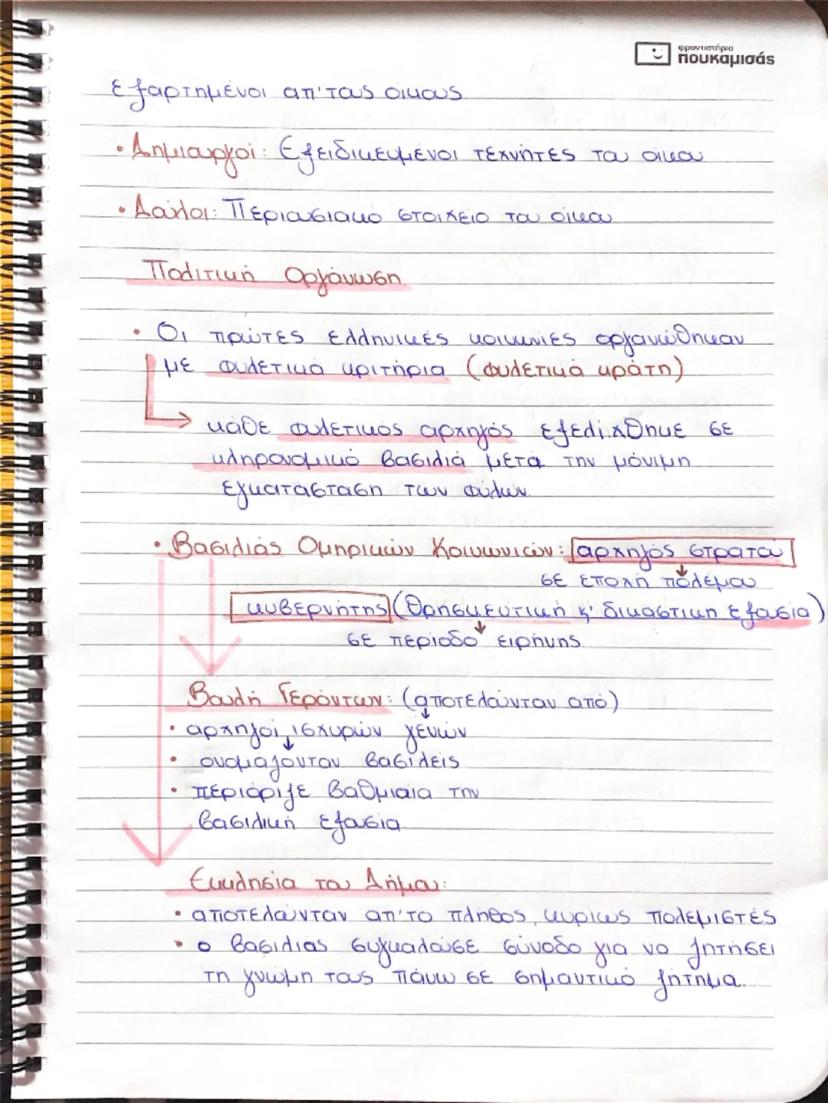 φροντιστήρια
πουκαμισάς
εξαρτημένοι απ'τους οικους
• Δημιουργοί: Εξειδικευμένοι τεχνήτες του οικου
• Δούλοι: Περιουσιακό στοιχείο του οίκου
Πολιτική Οργάνωση
• Οι πρώτες ελληνικές κοινωνίες οργανώθηκαν
με φυλετικά κριτήρια (φυλετικά κράτη)
κάθε φυλετικός αρχηγός εξελίχθηκε σε
κληρονομικό βασιλιά μετά την μόνιμη
εγκατάσταση των φύλων
• Βασιλιάς Ομηρικών Κοινωνιών: αρχηγός στρατού
σε εποχή πολέμου
κυβερνήτης (θρησκευτική κ' δικαστική εξουσία)
σε περίοδο ειρήνης
Βουλή Γερόντων: (αποτελούνταν από)
• αρχηγοί ισχυρών γενών
• ονομάζονταν βασιλείς
• περιόριζε βαθμιαία την
βασιλική εξουσία
Εκκλησία του Δήμου:
• αποτελούνταν απ'το πλήθος, κυρίως πολεμιστές
• ο βασιλιάς συγκαλούσε σύνοδο για να ζητήσει
τη γνώμη τους πάνω σε σημαντικό ζήτημα.